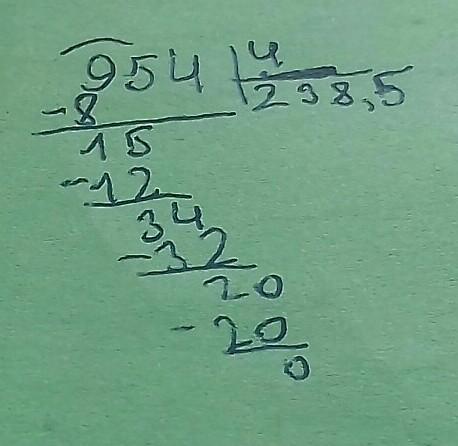 954 4
-8 238,5
15
-12
34
-32
20
-20
0